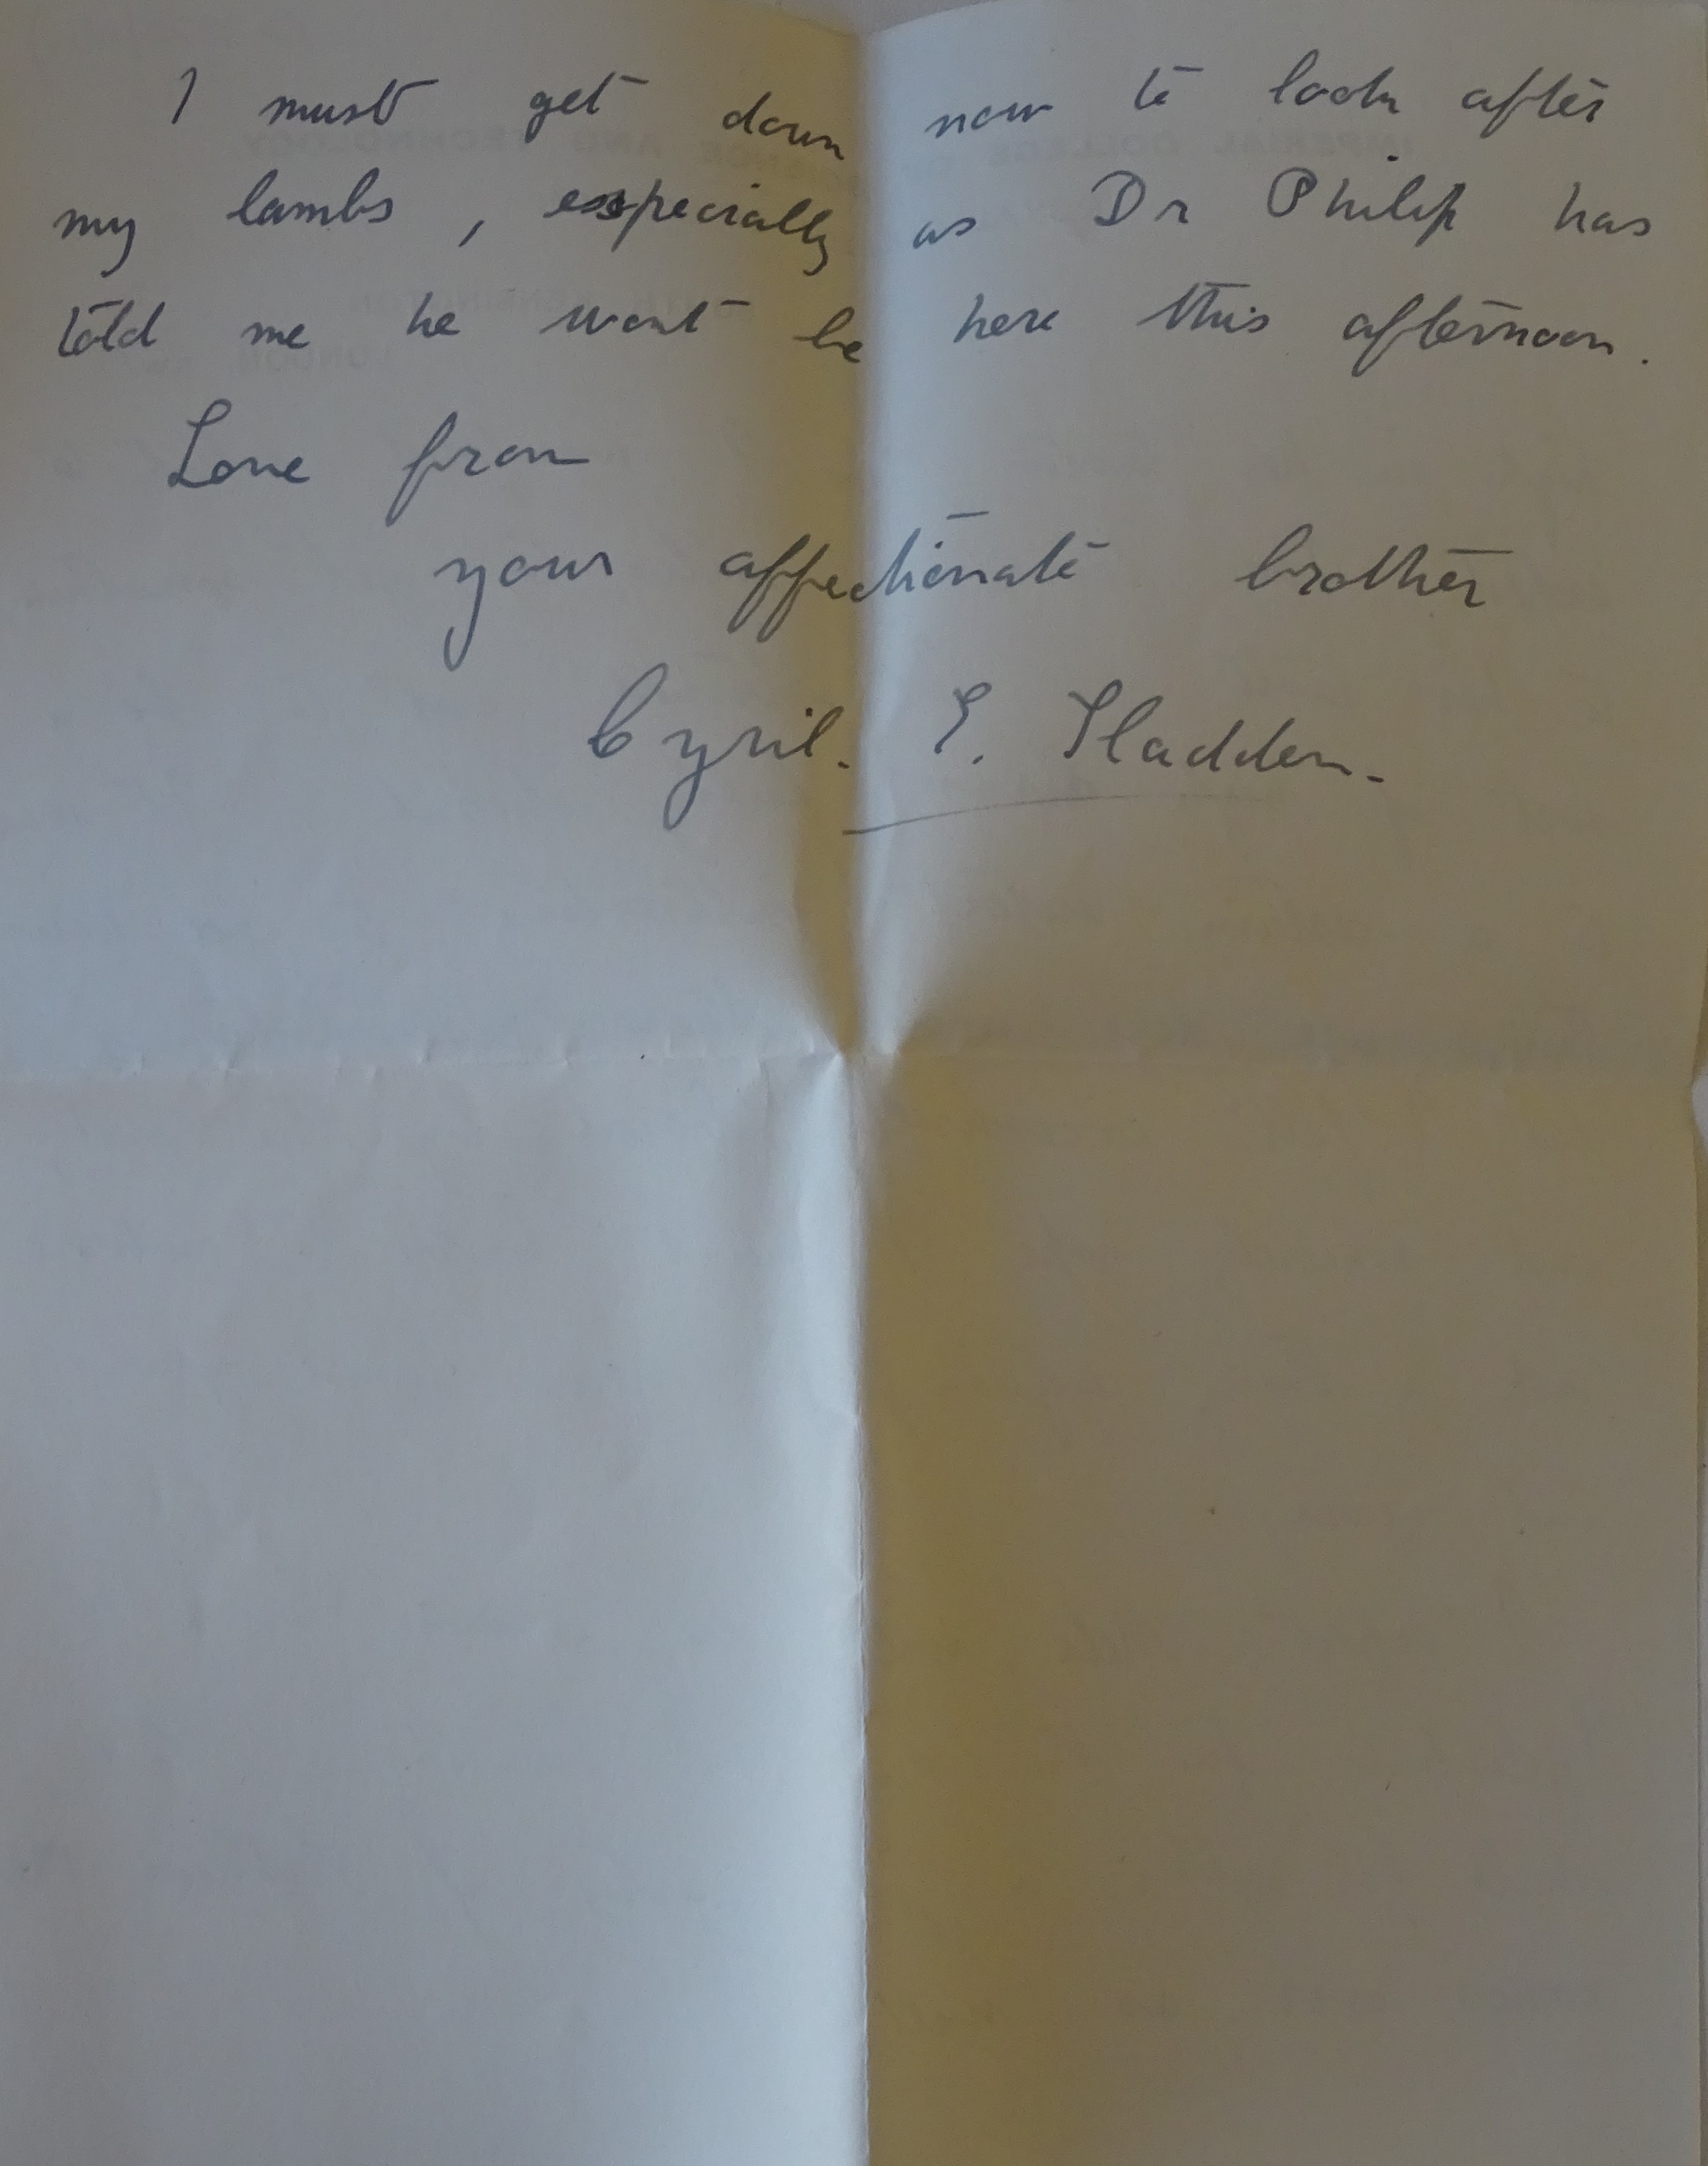 I must get down now to look after
my lambs, especially as Dr Philip has
told me he wont be here this afternoon.
Love from
your affectionate brother
Cyril. E. Sladden.